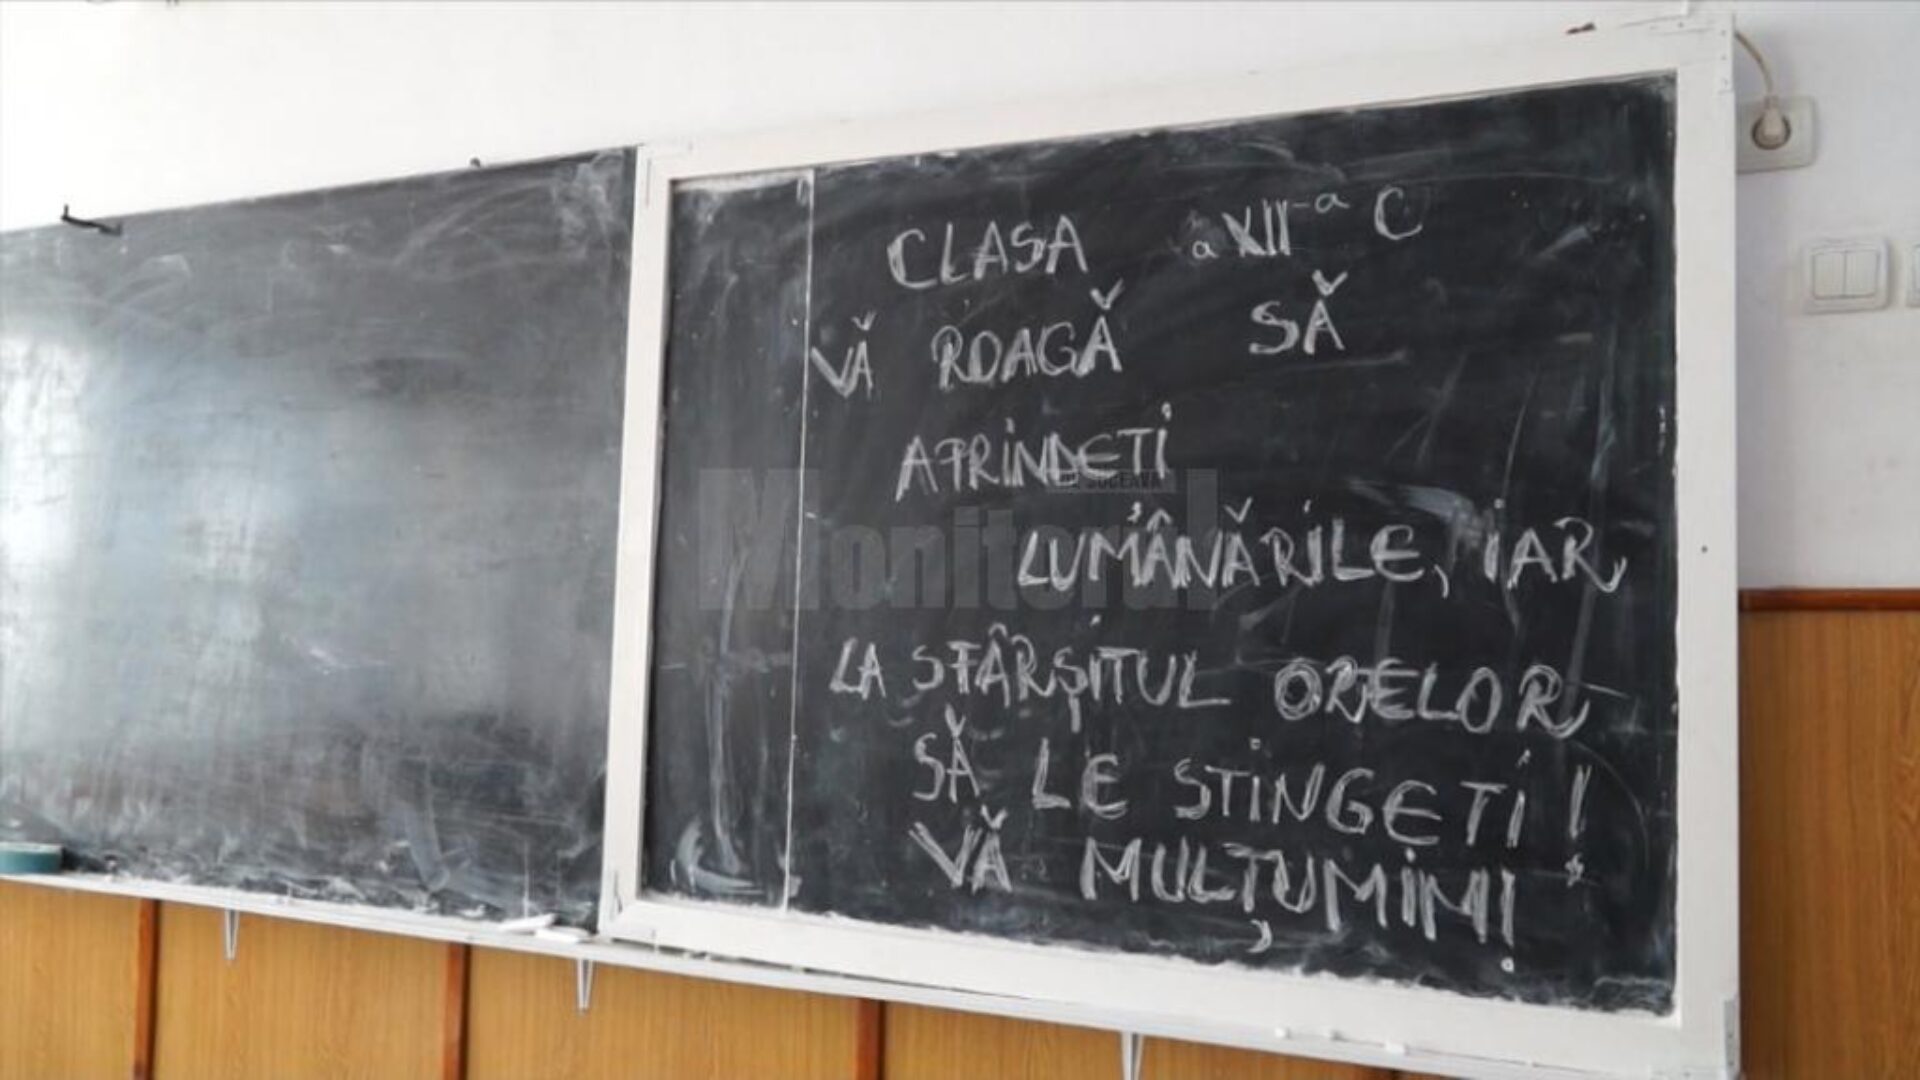 CLASA a XII-a C
VĂ ROAGĂ SĂ
APRINDETI
LUMÂNĂRILE, IAR
LA SFÂRȘITUL ORELOR
SĂ LE STINGETI!
VĂ MULȚUMIM!
Monitorul
DE SUCEAVA